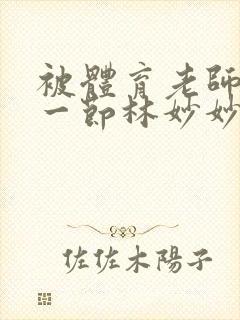 被體育老師
一節林妙妙
佐佐木陽子